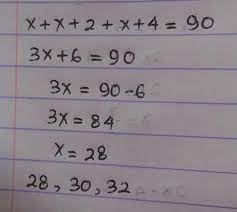 x+x+2+x+4=90
3x+6=90
3x=90-6
3x=84
x=28
28, 30, 32